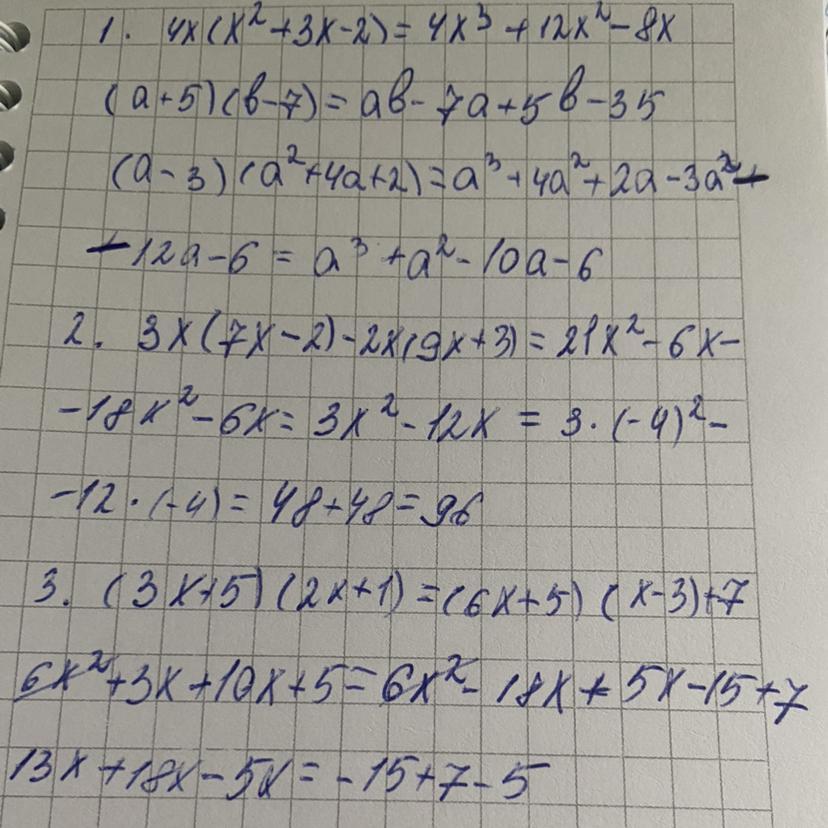 1. 4x(x²+3x-2)= 4x³ +12x²-8x
(a+5)(b-7)= ab-7a+5b-35
(a-3)(a²+4a+2)=a³+4a²+2a-3a²-
-12a-6 = a³+a²-10a-6
2. 3x(7x-2)-2x(9x+3)=21x²-6x-
-18x²-6x= 3x²-12x = 3·(-4)²-
-12·(-4)= 48+48=96
3. (3x+5)(2x+1)=(6x+5)(x-3)+7
6x²+3x+10x+5=6x²-18x+5x-15+7
13x+18x-5x=-15+7-5